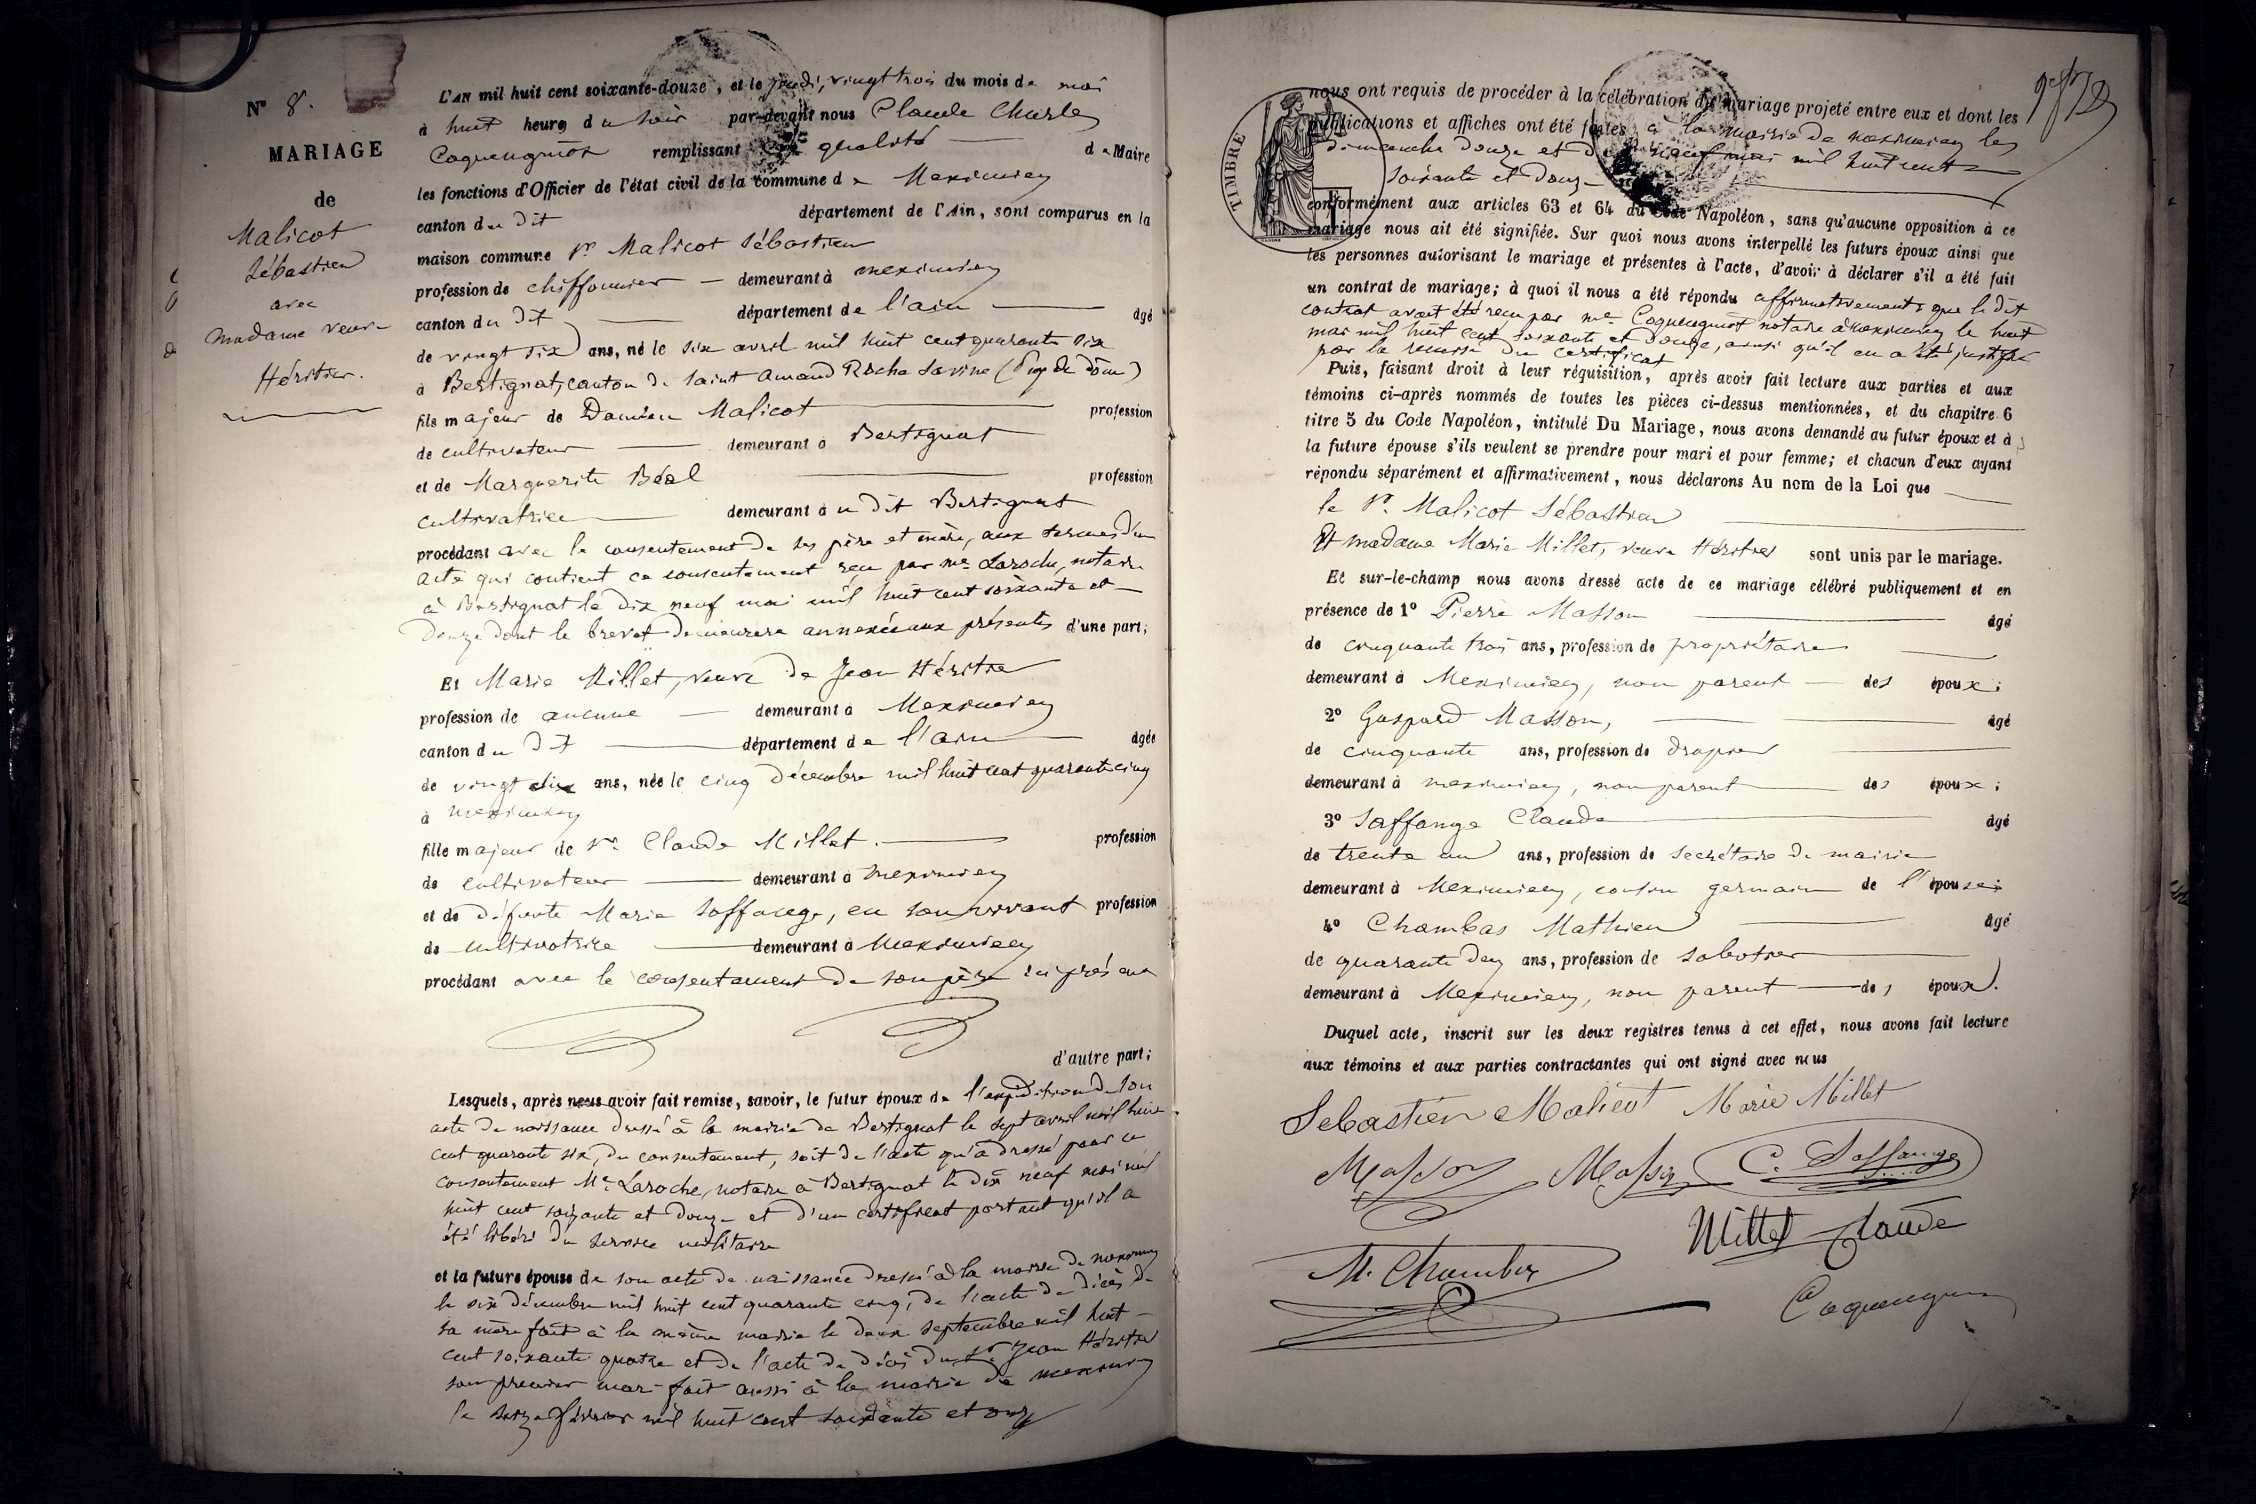 N° 8.
MARIAGE
de
Malicot
Sébastien
avec
madame veuve
Héritier.
L'AN mil huit cent soixante-douze, et le jeudi, vingt trois du mois de mai
à huit heures du soir par-devant nous Claude Charles
Coquengniot remplissant qualité de Maire
les fonctions d'Officier de l'état civil de la commune de Meximieu
canton du dit département de l'Ain, sont comparus en la
maison commune Sr Malicot Sébastien
profession de chiffonnier demeurant à meximieu
canton du dit département de l'ain âgé
de vingt six ans, né le six avril mil huit cent quarante six
à Bertignat, canton de Saint amand Roche Savine (Puy de dôme)
fils majeur de Damien Malicot profession
de cultivateur demeurant à Bertignat
et de Marguerite Béal profession
cultivatrice demeurant à u dit Bertignat
procédant avec le consentement de ses père et mère, aux termes d'un
acte qui contient ce consentement reçu par me Laroche, notaire
à Bertignat le dix neuf mai mil huit cent soixante et
douze dont le brevet demeurera annexé aux présentes d'une part;
Et Marie Millet, veuve de Jean Héritier
profession de aucune demeurant à Meximieu
canton du dit département de l'ain âgée
de vingt six ans, née le cinq décembre mil huit cent quarante cinq
à meximieu
fille majeur de Sr Claude Millet. profession
de cultivateur demeurant à meximieu
et de défunte Marie Saffange, en son vivant profession
de cultivatrice demeurant à Meximieu
procédant avec le consentement de son père ici présent
d'autre part;
Lesquels, après nous avoir fait remise, savoir, le futur époux de l'expédition de son
acte de naissance dressé à la mairie de Bertignat le sept avril mil huit
cent quarante six, du consentement, soit de l'acte qu'a dressé pour ce
consentement Me Laroche, notaire à Bertignat le dix neuf mai mil
huit cent soixante et douze et d'un certificat portant qu'il a
été libéré du service militaire
et la future épouse de son acte de naissance dressé à la mairie de meximieu
le six décembre mil huit cent quarante cinq, de l'acte de décès de
sa mère fait à la même mairie le deux septembre mil huit
cent soixante quatre et de l'acte de décès du Sr Jean Héritier
son premier mari fait aussi à la mairie de meximieu
le février mil huit cent soixante et onze
nous ont requis de procéder à la célébration du mariage projeté entre eux et dont les
publications et affiches ont été faites à la mairie de meximieu les
dimanche douze et dix neuf mai mil huit cent
soixante et douze
TIMBRE
conformément aux articles 63 et 64 du Code Napoléon, sans qu'aucune opposition à ce
mariage nous ait été signifiée. Sur quoi nous avons interpellé les futurs époux ainsi que
les personnes autorisant le mariage et présentes à l'acte, d'avoir à déclarer s'il a été fait
un contrat de mariage; à quoi il nous a été répondu affirmativement et que le dit
contrat avait été reçu par me Coquengniot notaire à meximieu le huit
mai mil huit cent soixante et douze, ainsi qu'il en a été justifié
par la remise du certificat
Puis, faisant droit à leur réquisition, après avoir fait lecture aux parties et aux
témoins ci-après nommés de toutes les pièces ci-dessus mentionnées, et du chapitre 6
titre 5 du Code Napoléon, intitulé Du Mariage, nous avons demandé au futur époux et à
la future épouse s'ils veulent se prendre pour mari et pour femme; et chacun d'eux ayant
répondu séparément et affirmativement, nous déclarons Au nom de la Loi que
le Sr. Malicot Sébastien
Et madame Marie Millet, veuve Héritier sont unis par le mariage.
Et sur-le-champ nous avons dressé acte de ce mariage célébré publiquement et en
présence de 1° Pierre Masson âgé
de cinquante trois ans, profession de propriétaire
demeurant à Meximieu, non parent des époux;
2° Gaspard Masson, âgé
de cinquante ans, profession de drapier
demeurant à meximieu, non parent des époux;
3° Saffange Claude âgé
de trente un ans, profession de secrétaire de mairie
demeurant à Meximieu, cousin germain de l'épouse;
4° Chambas Mathieu âgé
de quarante deux ans, profession de sabotier
demeurant à Meximieu, non parent des époux.
Duquel acte, inscrit sur les deux registres tenus à cet effet, nous avons fait lecture
aux témoins et aux parties contractantes qui ont signé avec nous
Sebastien Malicot Marie Millet
Masson Masson C. Saffange
M. Chambas Millet Claude
Coquengniot